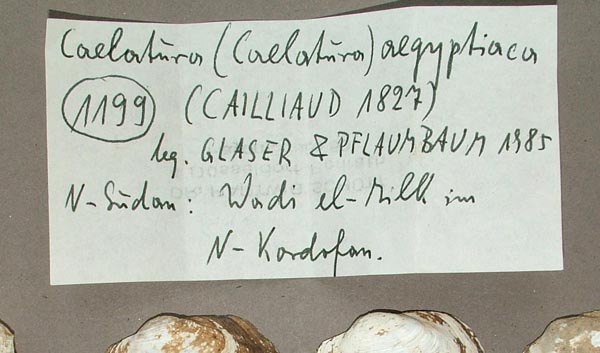 Caelatūra (Caelatūra) aegyptiaca
1199 (CAILLIAUD 1827)
leg. GLASER & PFLAUMBAUM 1985
N-Sūdan: Wadi el-Milk im
N-Kordofan.